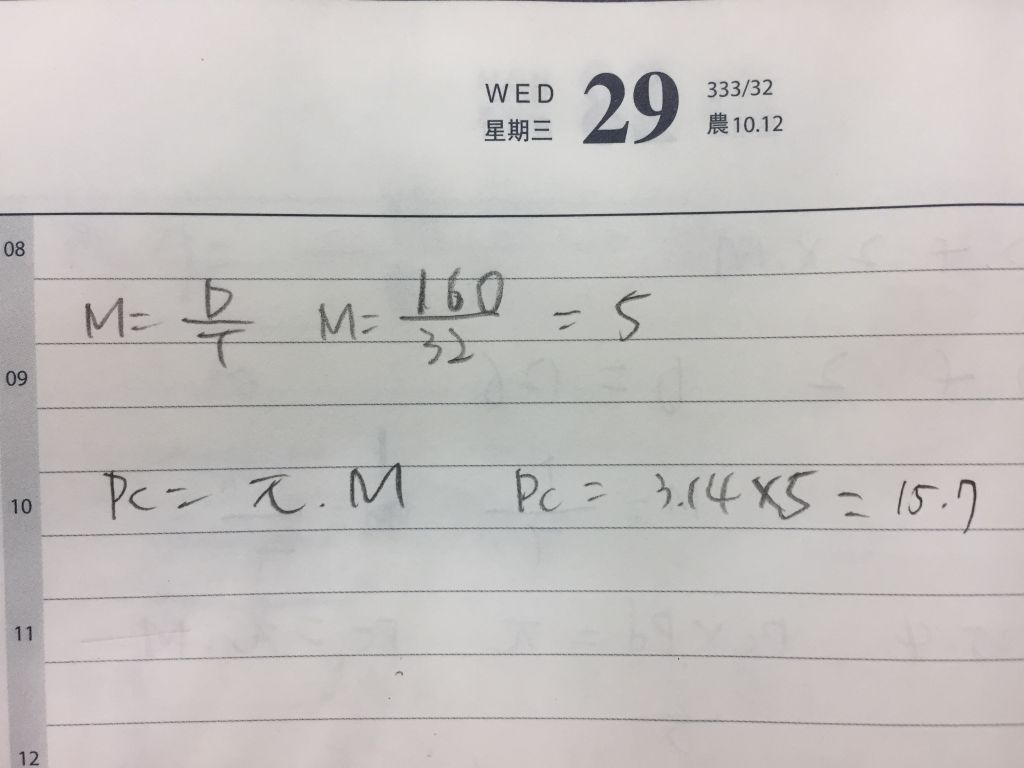 WED 29 333/32
星期三 農10.12
08
M = D/T M = 160/32 = 5
09
10 Pc = π . M Pc = 3.14 × 5 = 15.7
11
12